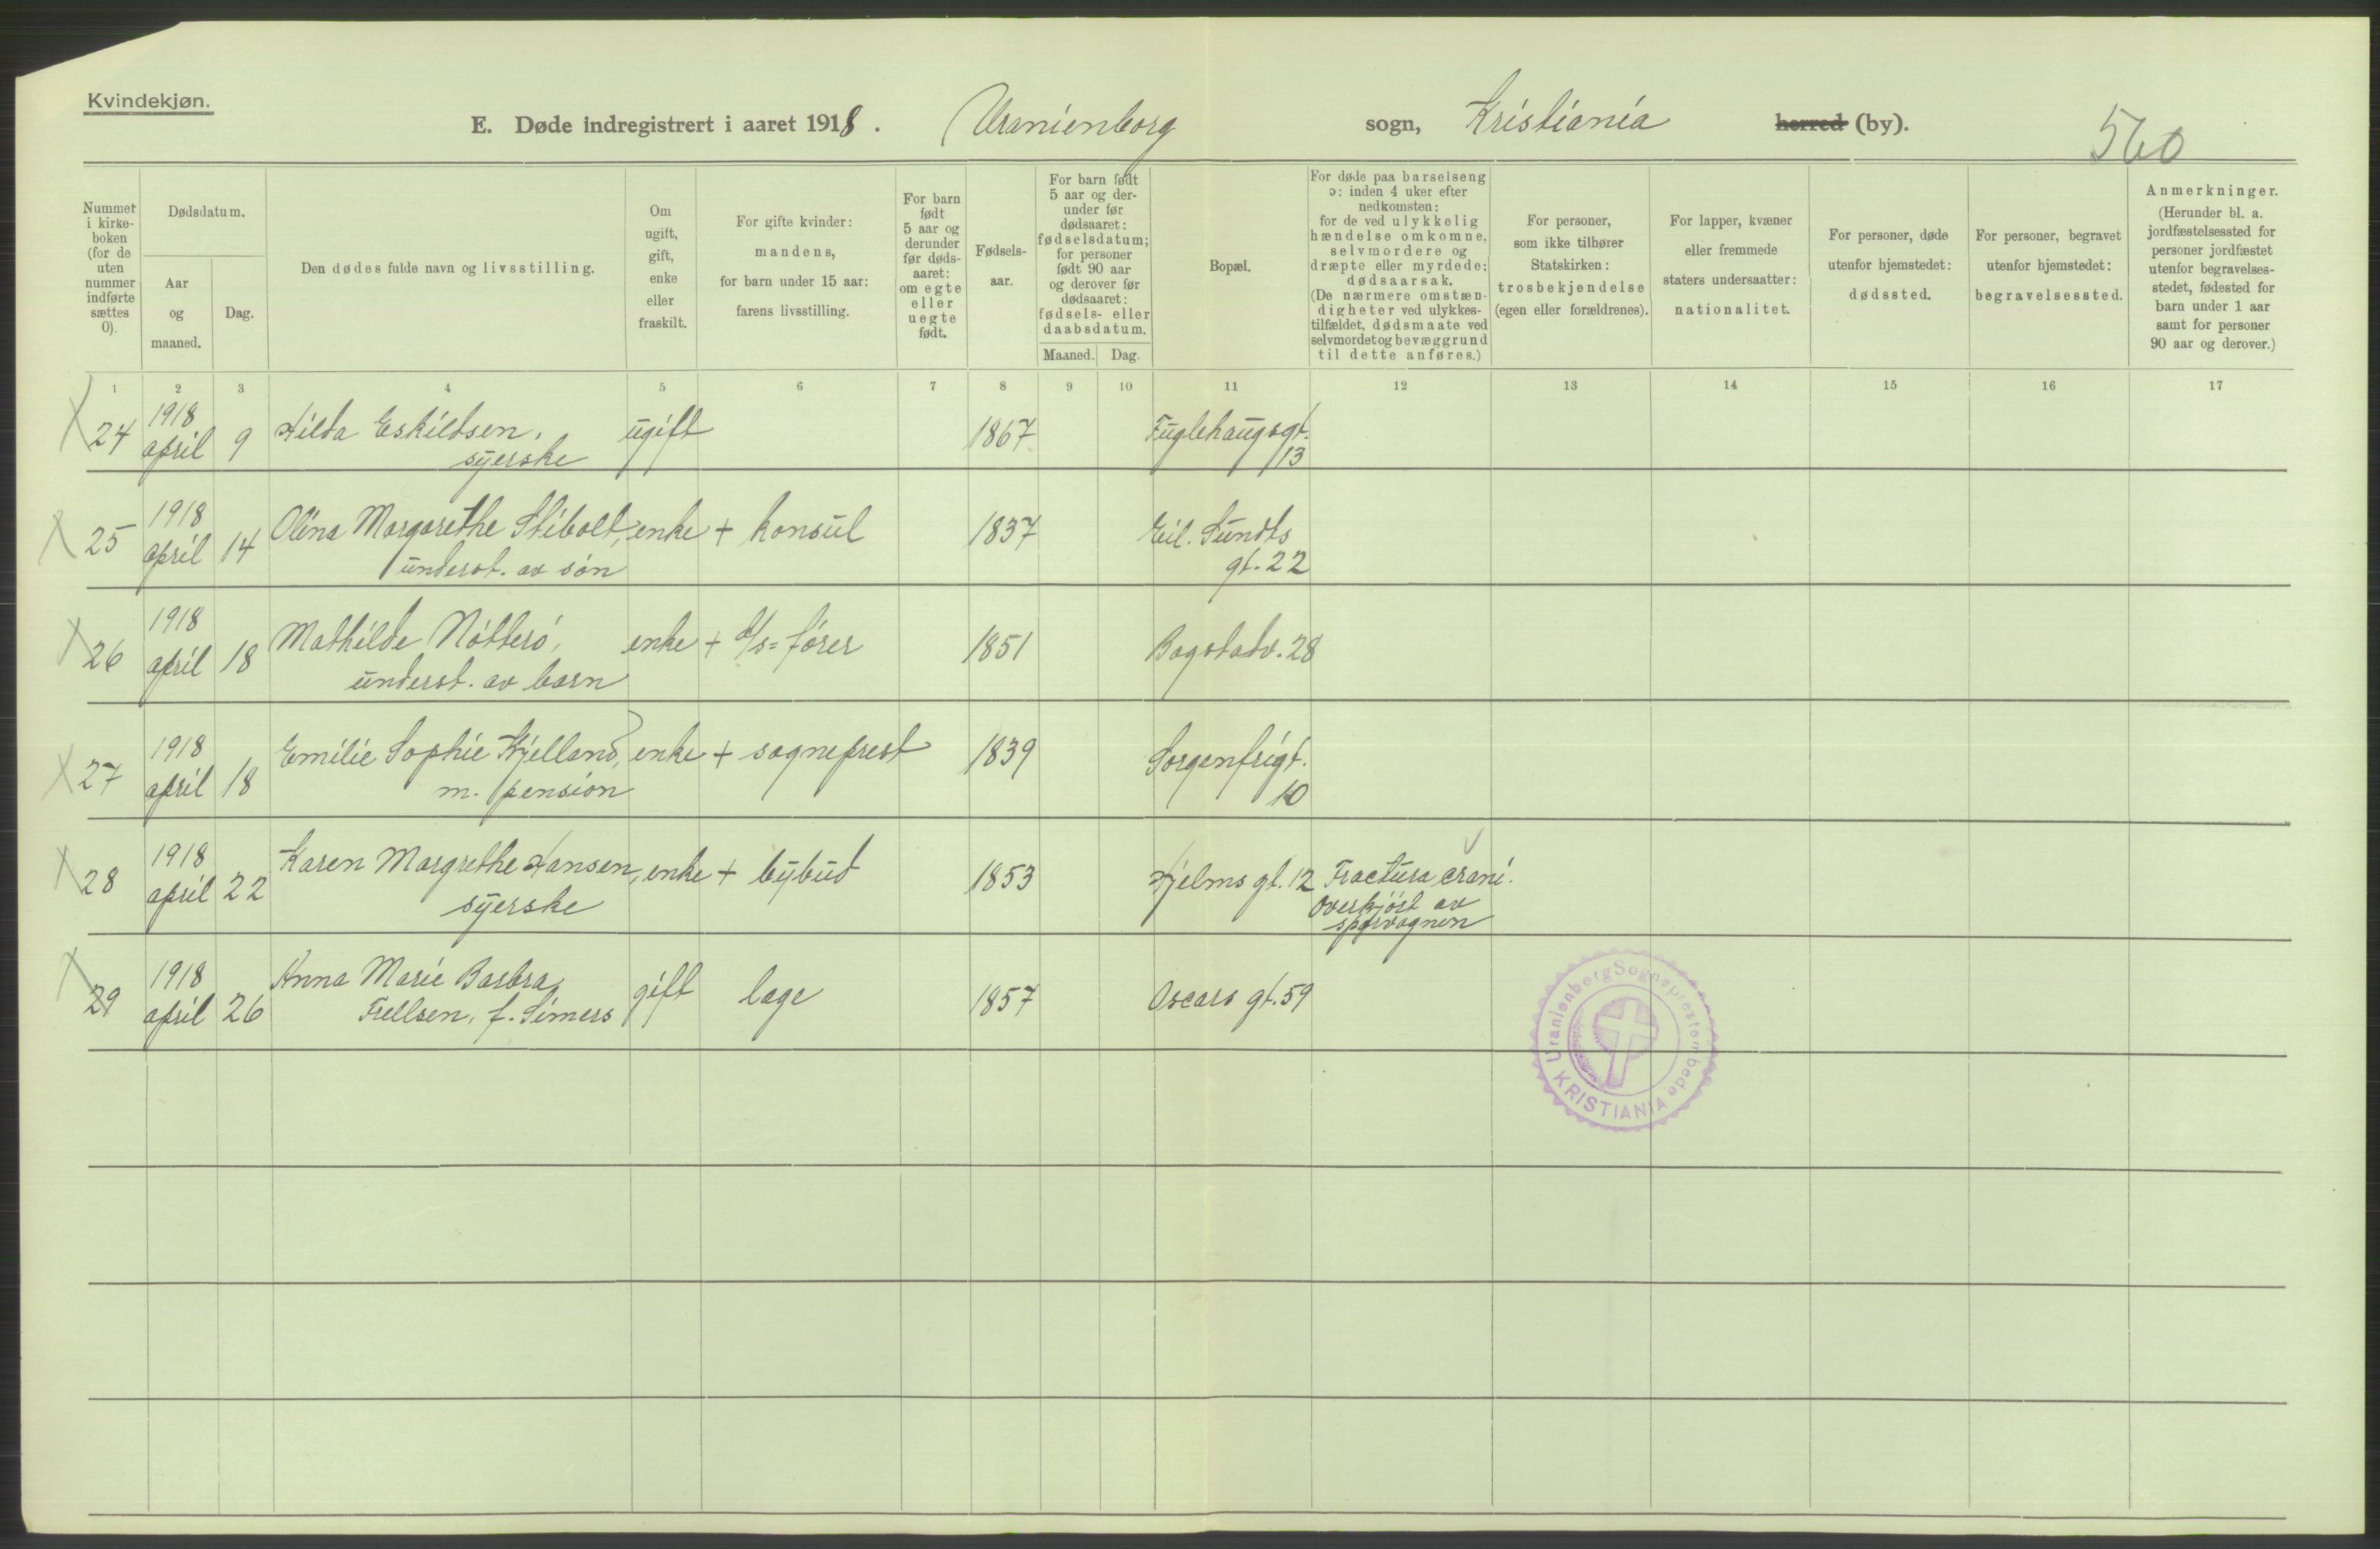 Kvindekjøn.
E. Døde indregistrert i aaret 1918. Uranienborg sogn, Kristiania herred (by).
560
Nummer i kirkeboken (for de uten nummer indførte sættes 0).
Dødsdatum.
Aar og maaned.
Dag.
Den dødes fulde navn og livsstilling.
Om ugift, gift, enke eller fraskilt.
For gifte kvinder: mandens, for barn under 15 aar: farens livsstilling.
For barn født 5 aar og derunder før dødsaaret: om egte eller uegte født.
Fødselsaar.
For barn født 5 aar og derunder før dødsaaret: fødselsdatum; for personer født 90 aar og derover før dødsaaret: fødsels- eller daabsdatum.
Maaned. Dag.
Bopæl.
For døde paa barselseng ɔ: inden 4 uker efter nedkomsten: for de ved ulykkelig hændelse omkomne, selvmordere og dræpte eller myrdede: dødsaarsak. (De nærmere omstændigheter ved ulykkestilfældet, dødsmaate ved selvmordet og bevæggrund til dette anføres.)
For personer, som ikke tilhører Statskirken: trosbekjendelse (egen eller forældrenes).
For lapper, kvæner eller fremmede staters undersaatter: nationalitet.
For personer, døde utenfor hjemstedet: dødssted.
For personer, begravet utenfor hjemstedet: begravelsessted.
Anmerkninger. (Herunder bl. a. jordfæstelsessted for personer jordfæstet utenfor begravelsesstedet, fødested for barn under 1 aar samt for personer 90 aar og derover.)
1 2 3 4 5 6 7 8 9 10 11 12 13 14 15 16 17
24 1918 april 9 Hilda Eskildsen, ugift 1867 Fuglehaugsgt. 13
syerske
25 1918 april 14 Olina Margarethe Stibolt, enke + konsul 1837 Eil. Sundts gt. 22
underst. av søn
26 1918 april 18 Mathilde Nötterö, enke + d/s=fører 1851 Bogstadv. 28
underst. av barn
27 1918 april 18 Emilie Sophie Kjelland, enke + sogneprest 1839 Sorgenfrigt. 10
m. pension
28 1918 april 22 Karen Margrethe Hansen, enke + bybud 1853 Hjelms gt. 12 Fractura crani.
syerske Overkjört av
sporvognen
29 1918 april 26 Anna Marie Barbra gift læge 1857 Oscars gt. 59
Frellsen, f. Simers
Uranienborg Sogneprestembede KRISTIANIA